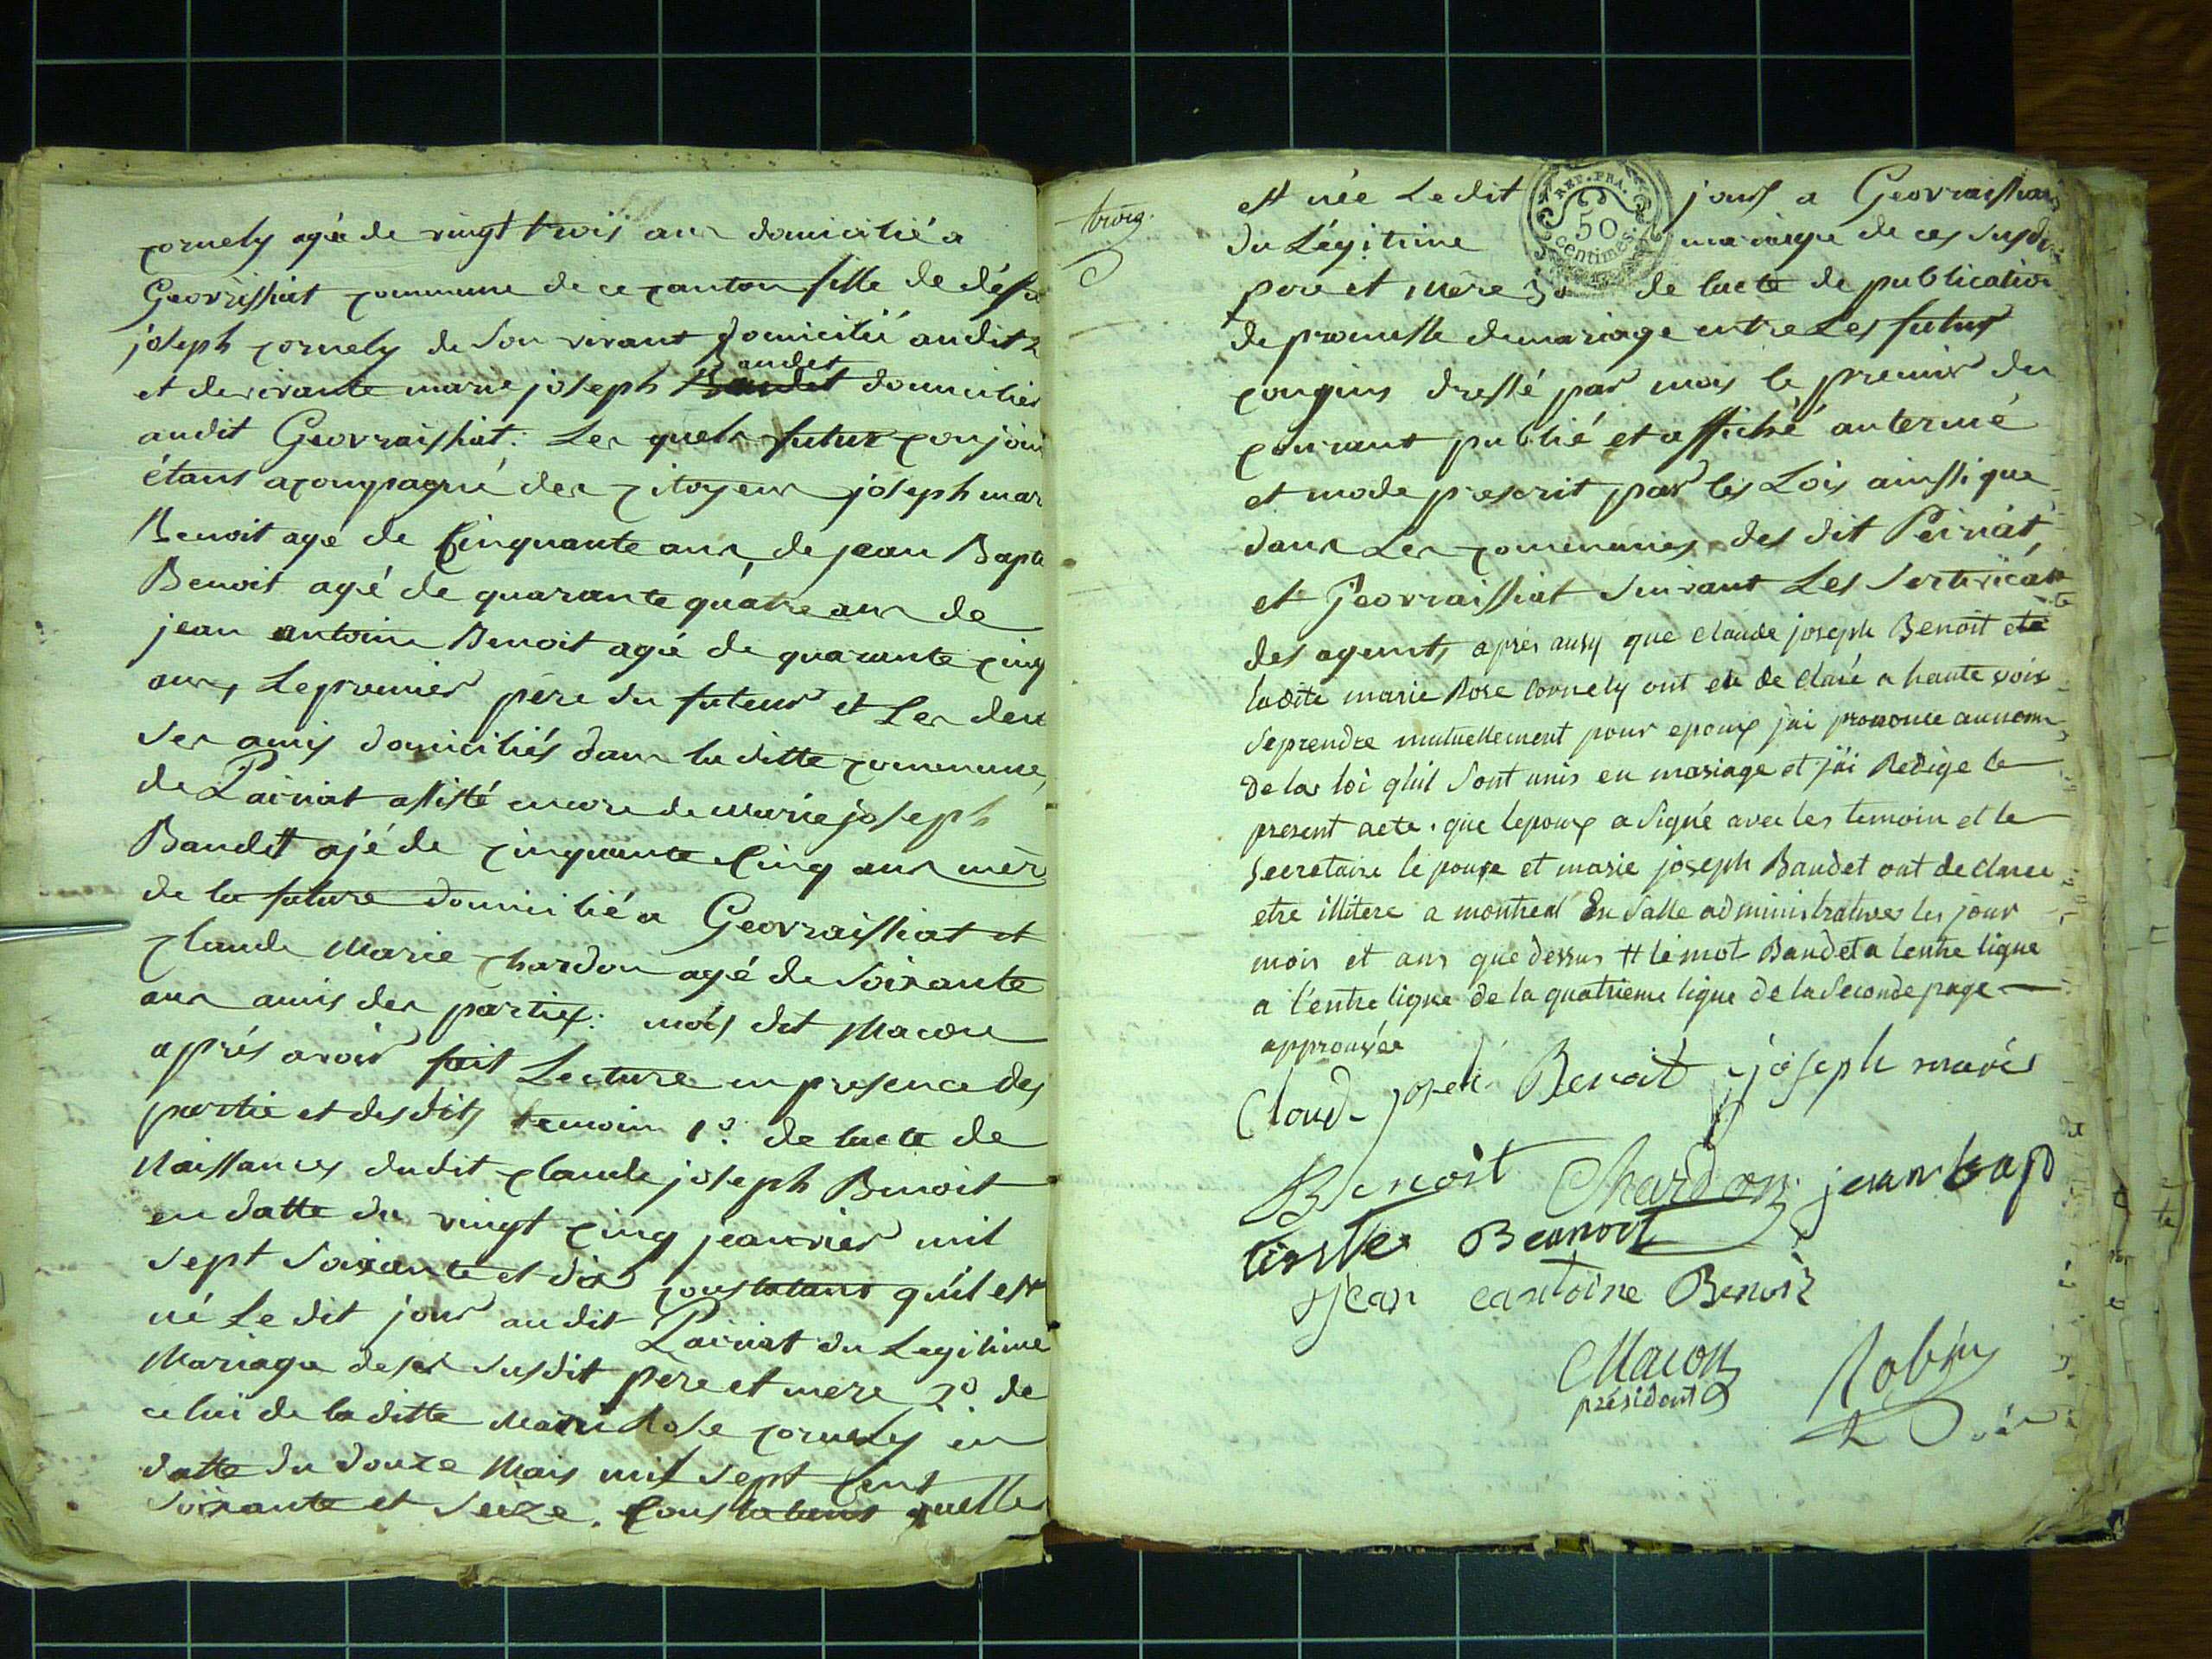 cornely agée de vingt trois ans domicilié a
Geovrissiat commune de ce canton fille de défu
joseph cornely de son vivant domicilié audit
Baudet
et de vivante marie joseph Baudet domiciliée
audit Geovraissiat. Les quels futur conjoin
étant acompagné des citoyens joseph mar
Benoit age de Cinquante ans, de jean Bapte
Benoit agé de quarante quátre ans de
jean antoine Benoit agé de quarante cinq
ans, Le premier père du futeur et Les deu
ses amis domiciliés dans la ditte commune,
de Pairiat assisté encore de marie joseph
Baudet ajé de cinquante Cinq ans mère
de la future domicilié a Geovraissiat et
claude Marie chardon agé de soixante
ans amis des parties: moy dit Macon
aprés avoir fait Lecture en presence des
partie et desdits temoin 1º. de lacte de
Naissances dudit claude joseph Benoit
en datte du vingt cinq jeanvier mil
sept soixante et dix constatant qu'il est
né Le dit jour audit Pairiat du Legitime
Mariage de ses susdit père et mere 2º. de
celui de la ditte Marie Rose cornely en
datte du douze Mars mil sept Cent
soixante et seize. Constatant quelle
est née Le dit jour a Geovraissiat
REP. FRA.
50
centimes.
du Légitime mariage de ces susdit
père et mère 3º de lacte de publication
de promesse demariage entre Les futur
conjoins dressé par moy le premier du
courant publié et affiché au termé
et mode prescrit par les Lois ainssi que
dans Les communes des dit Peiriat,
et Geovraissiat suivant Les sertificat
des agents, aprés ausy que claude joseph Benoit et
ladite marie Rose Cornely ont de claré a haute voix
se prendre mutuellement pour epoux j'ai prononcé au nom
de la loi qhil sont unis en mariage et j'ai Redigé le
present acte. que lepoux a signé avec les temoin et le
secretaire lepouse et marie joseph Baudet ont declaree
etre illitere a montreal En salle administratives les jour
mois et ans que dessus # le mot Baudet a lentre ligne
a l'entre ligne de la quatrieme ligne de la seconde page
approuvée
Claude joseh Benoit joseph maries
Benoit Chardon jean bap
tiste Beanoit
jean eantoine Benoit
Macon Robin
président